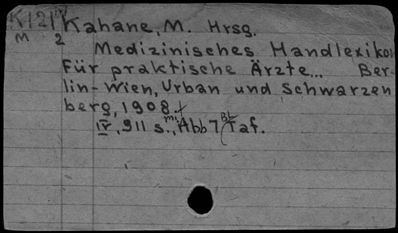 K121 Kahane, M. Hrsg.
M 2
Medizinisches Handlexikon
Für praktische Ärzte... Ber-
lin-Wien, Urban und Schwarzen
berg, 1908.
IV, 911 S., mit Abb 7 Bl Taf.